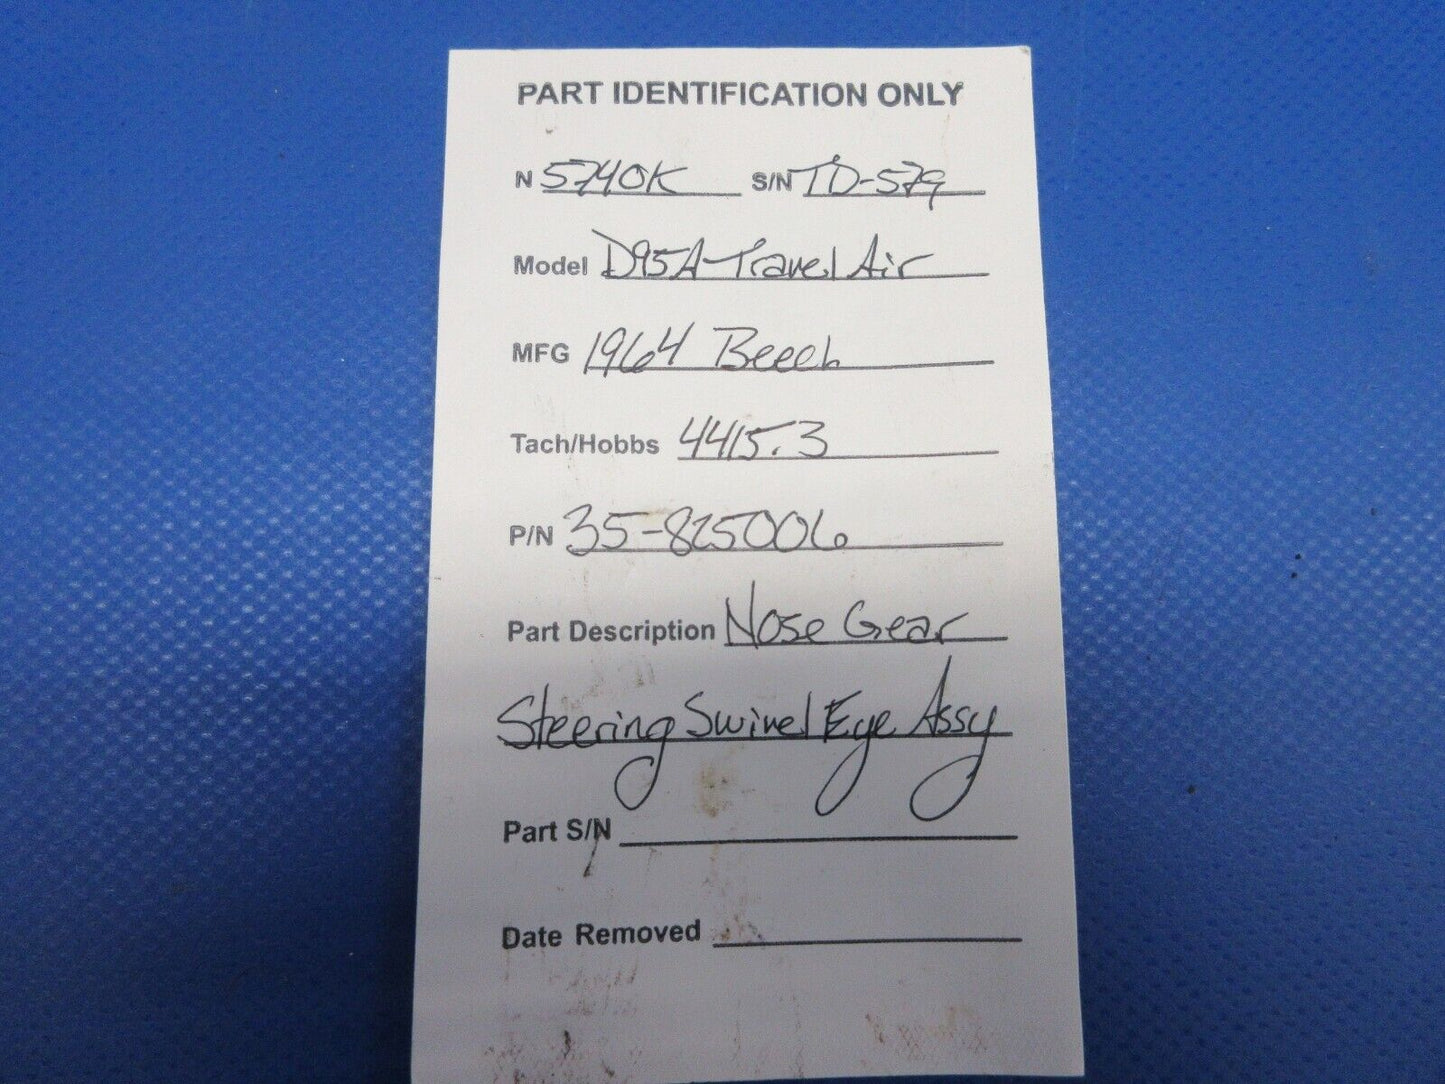 PART IDENTIFICATION ONLY
N 5740K S/N TD-579
Model D95A-Travel Air
MFG 1964 Beech
Tach/Hobbs 4415.3
P/N 35-825006
Part Description Nose Gear
Steering Swivel Eye Assy
Part S/N
Date Removed